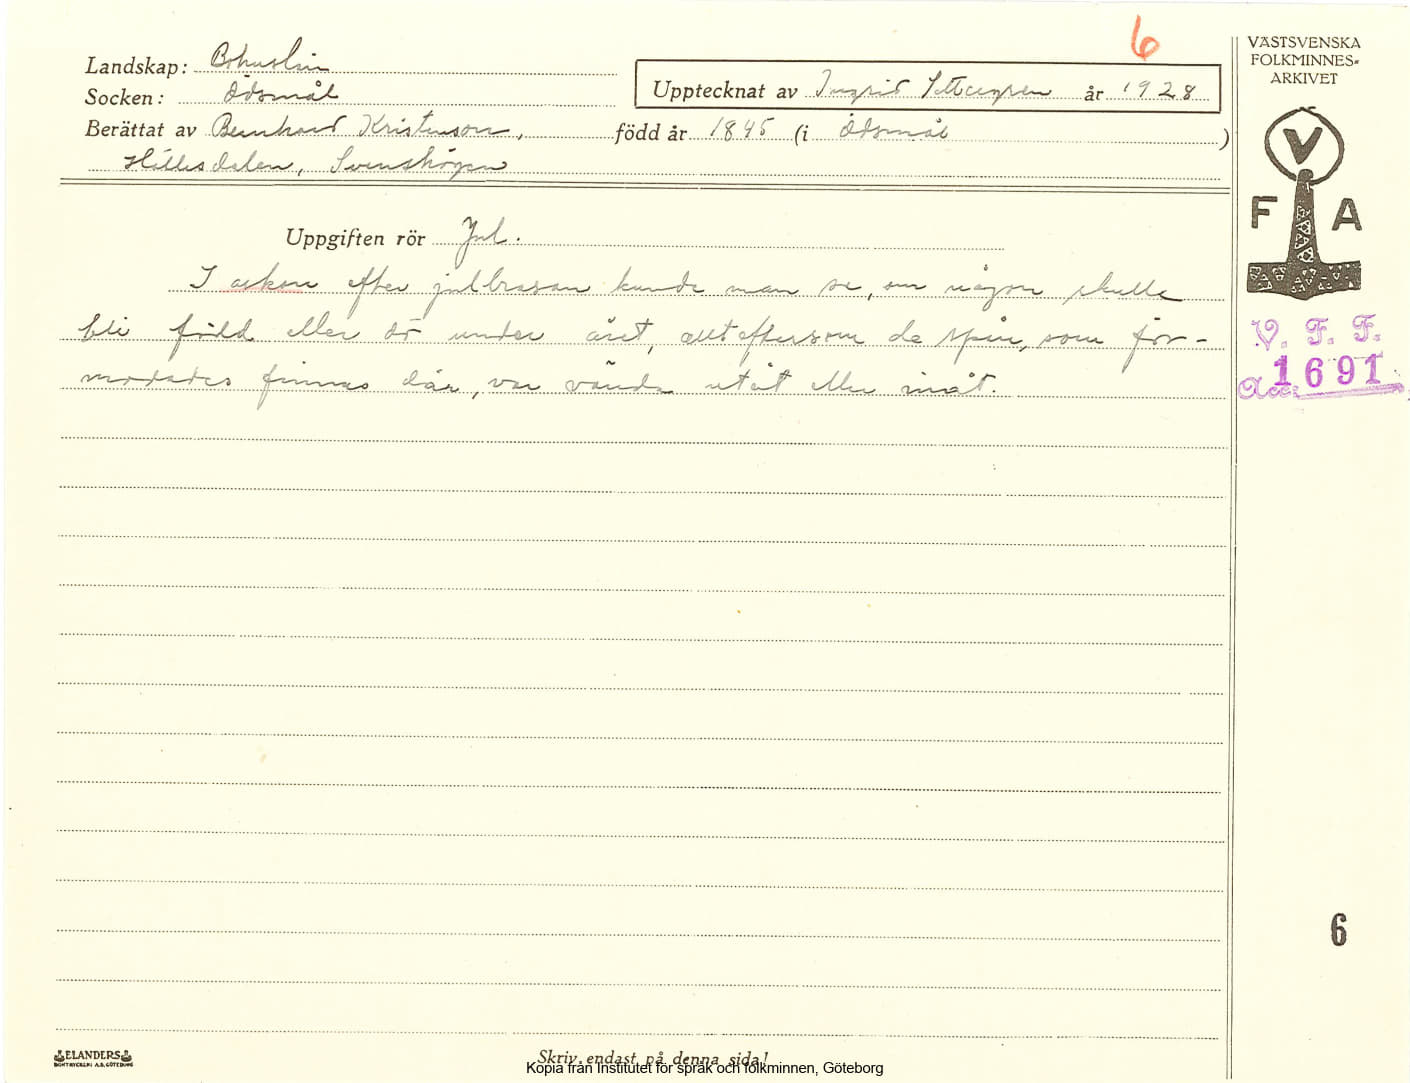 6
VÄSTSVENSKA
FOLKMINNES-
ARKIVET
Landskap: Bohuslän
Socken: Ödsmål
Upptecknat av Ingrid år 1928
Berättat av Bernhard Kristenson, född år 1845 (i Ödsmål)
Hällesdalen, Svenshögen
V
F A
Uppgiften rör Jul.
I askan efter julbrasan kunde man se, om någon skulle
bli född eller dö under året, allt eftersom de spår, som för-
modades finnas där, var vända utåt eller inåt.
V. F. F.
Acc: 1691
6
ELANDERS
BOKTRYCKERI A.B. GÖTEBORG
Skriv endast på denna sida!
Kopia från Institutet för språk och folkminnen, Göteborg